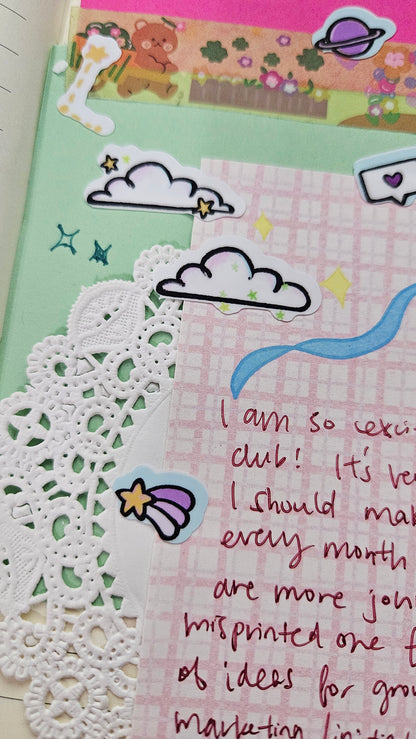 I am so exci
club! It's ve
I should mak
every month
are more join
misprinted one f
of ideas for grow
marketing